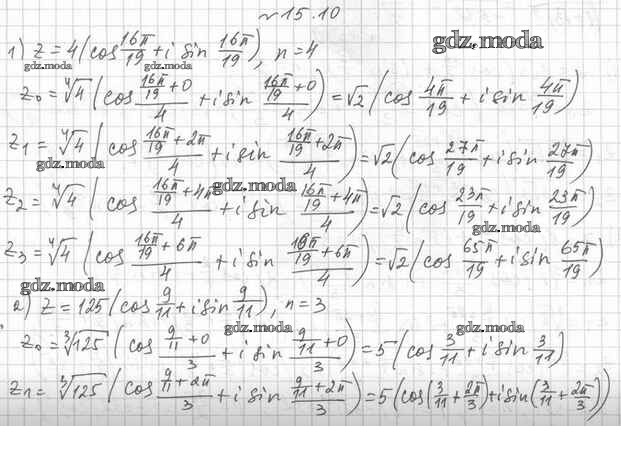 №15.10
1) z = 4 (cos 16π/19 + i sin 16π/19), n=4
gdz.moda
gdz.moda gdz.moda
z₀ = ⁴√4 (cos (16π/19 + 0)/4 + i sin (16π/19 + 0)/4) = √2 (cos 4π/19 + i sin 4π/19)
z₁ = ⁴√4 (cos (16π/19 + 2π)/4 + i sin (16π/19 + 2π)/4) = √2 (cos 27π/19 + i sin 27π/19)
gdz.moda
z₂ = ⁴√4 (cos (16π/19 + 4π)/4 + i sin (16π/19 + 4π)/4) = √2 (cos 23π/19 + i sin 23π/19)
gdz.moda
gdz.moda
z₃ = ⁴√4 (cos (16π/19 + 6π)/4 + i sin (16π/19 + 6π)/4) = √2 (cos 65π/19 + i sin 65π/19)
gdz.moda
2) z = 125 (cos 9/11 + i sin 9/11), n=3
gdz.moda gdz.moda
z₀ = ³√125 (cos (9/11 + 0)/3 + i sin (9/11 + 0)/3) = 5 (cos 3/11 + i sin 3/11)
z₁ = ³√125 (cos (9/11 + 2π)/3 + i sin (9/11 + 2π)/3) = 5 (cos (3/11 + 2π/3) + i sin (3/11 + 2π/3))